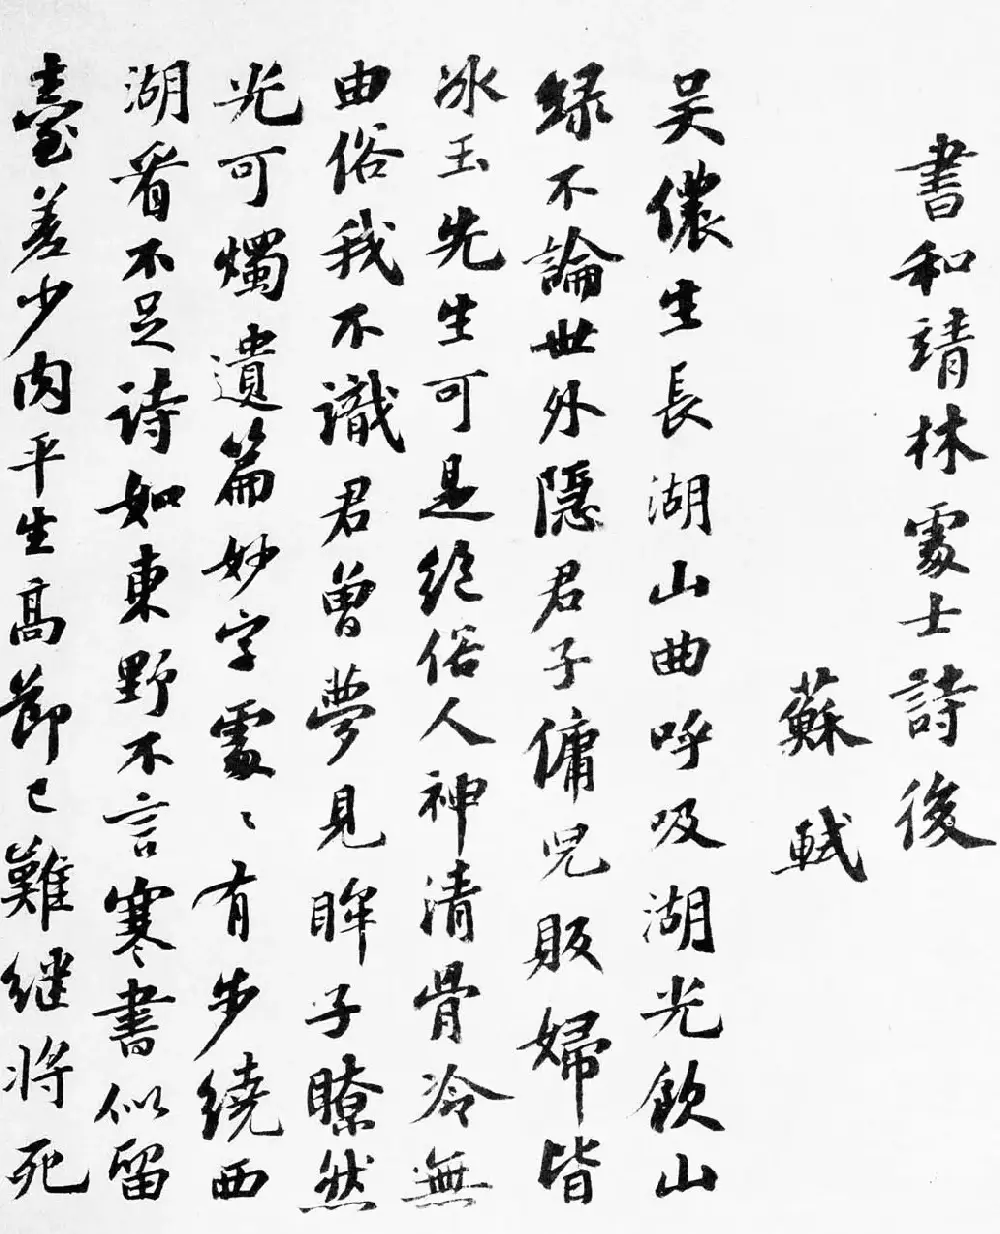 書和靖林處士詩後
蘇軾
吴儂生長湖山曲呼吸湖光飲山
緑不論世外隱君子傭兒販婦皆
冰玉先生可是絶俗人神清骨冷無
由俗我不識君曾夢見眸子瞭然
光可燭遺篇妙字處〻有步繞西
湖看不足詩如東野不言寒書似留
臺差少肉平生高節已難継将死